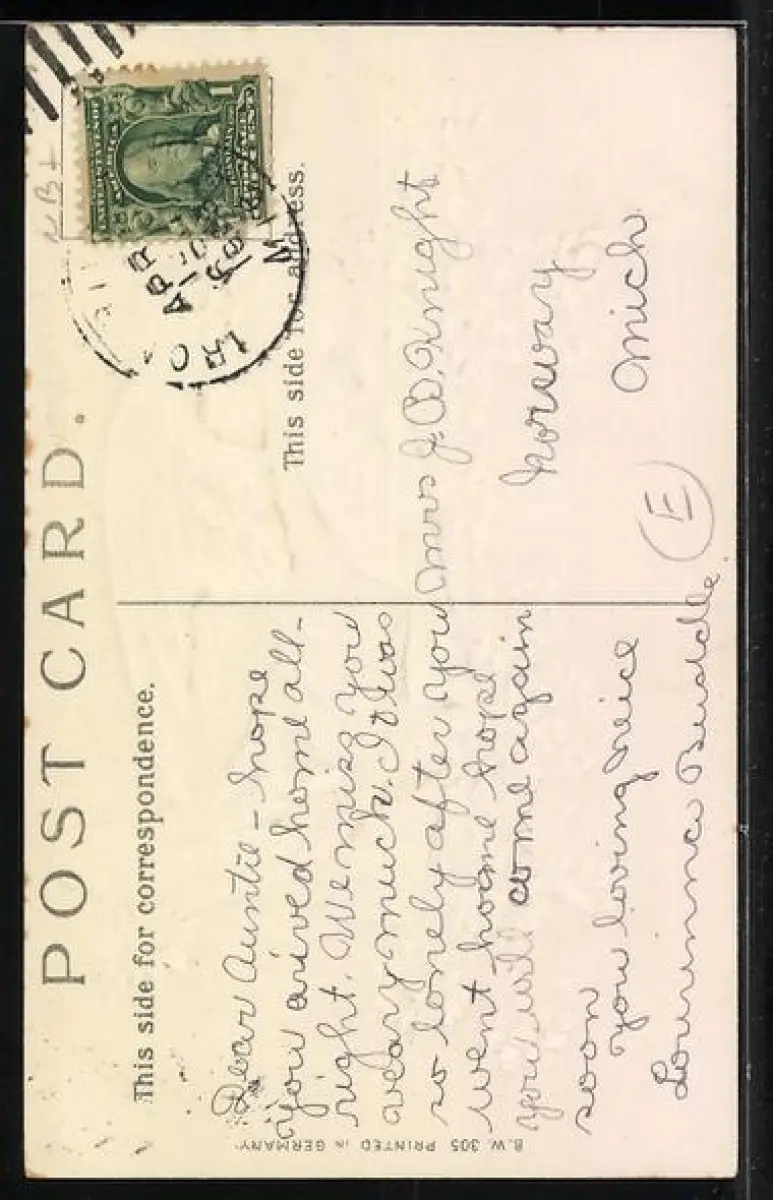 POST CARD.
This side for correspondence.
This side for address.
Dear Auntie - hope
you arived home all-
right. We miss you
veary much. It was
so lonely after you
went home hope
you will come again
soon
you loving neice
Mrs J. B. Knight
Norway
Mich
E
APR
B.W. 305 PRINTED IN GERMANY